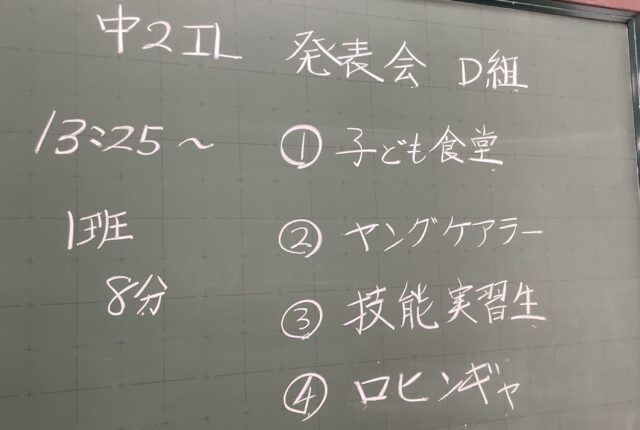 中2IL 発表会 D組
13:25～
① 子ども食堂
1班
8分
② ヤングケアラー
③ 技能実習生
④ ロヒンギャ